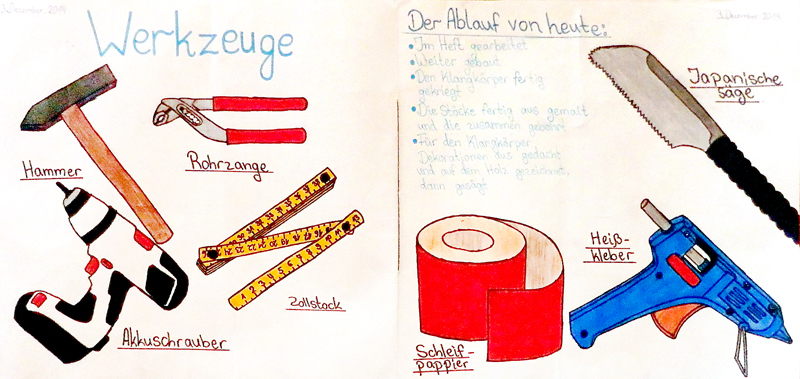 3. Dezember 2014
Werkzeuge
Hammer
Rohrzange
Zollstock
Akkuschrauber
Der Ablauf von heute:
3. Dezember 2014
• Im Heft gearbeitet
• Weiter gebaut
• Den Klangkörper fertig
gekriegt
• Die Stöcke fertig aus gemalt
und die zusammen gebohrt
• Für den Klangkörper
Dekorationen aus gedacht
und auf dem Holz gezeichnet,
dann gesägt
Japanische
säge
Heiß-
kleber
Schleif-
pappier